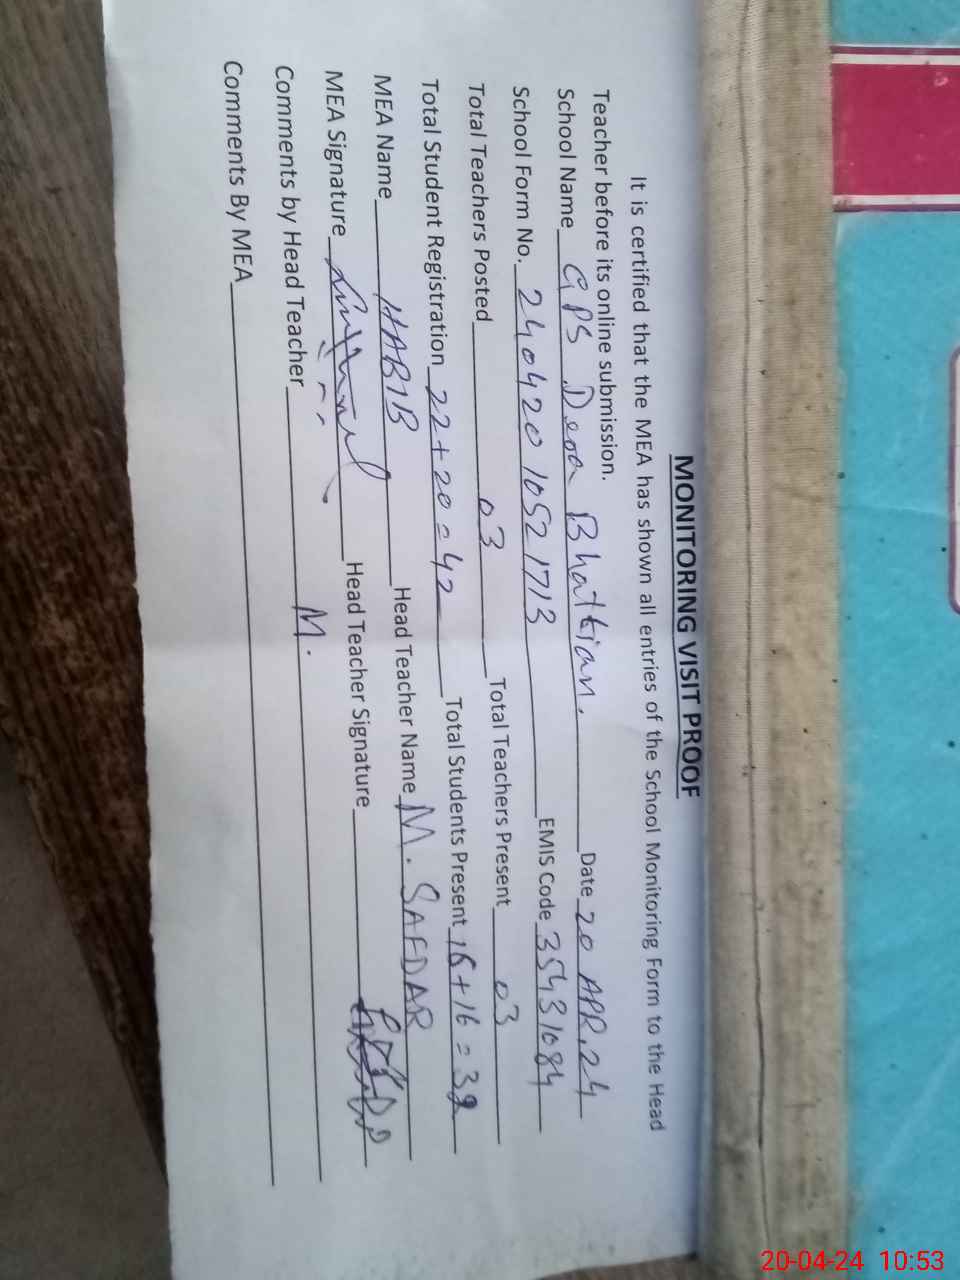 MONITORING VISIT PROOF
It is certified that the MEA has shown all entries of the School Monitoring Form to the Head
Teacher before its online submission.
School Name GPS Deoa Bhattian, Date 20 APR, 24
School Form No. 240420 1052 1713 EMIS Code 35431084
Total Teachers Posted 03 Total Teachers Present 03
Total Student Registration 22+20=42 Total Students Present 16+16=32
MEA Name HABIB Head Teacher Name M. SAFDAR
MEA Signature Head Teacher Signature
Comments by Head Teacher M.
Comments By MEA
20-04-24 10:53